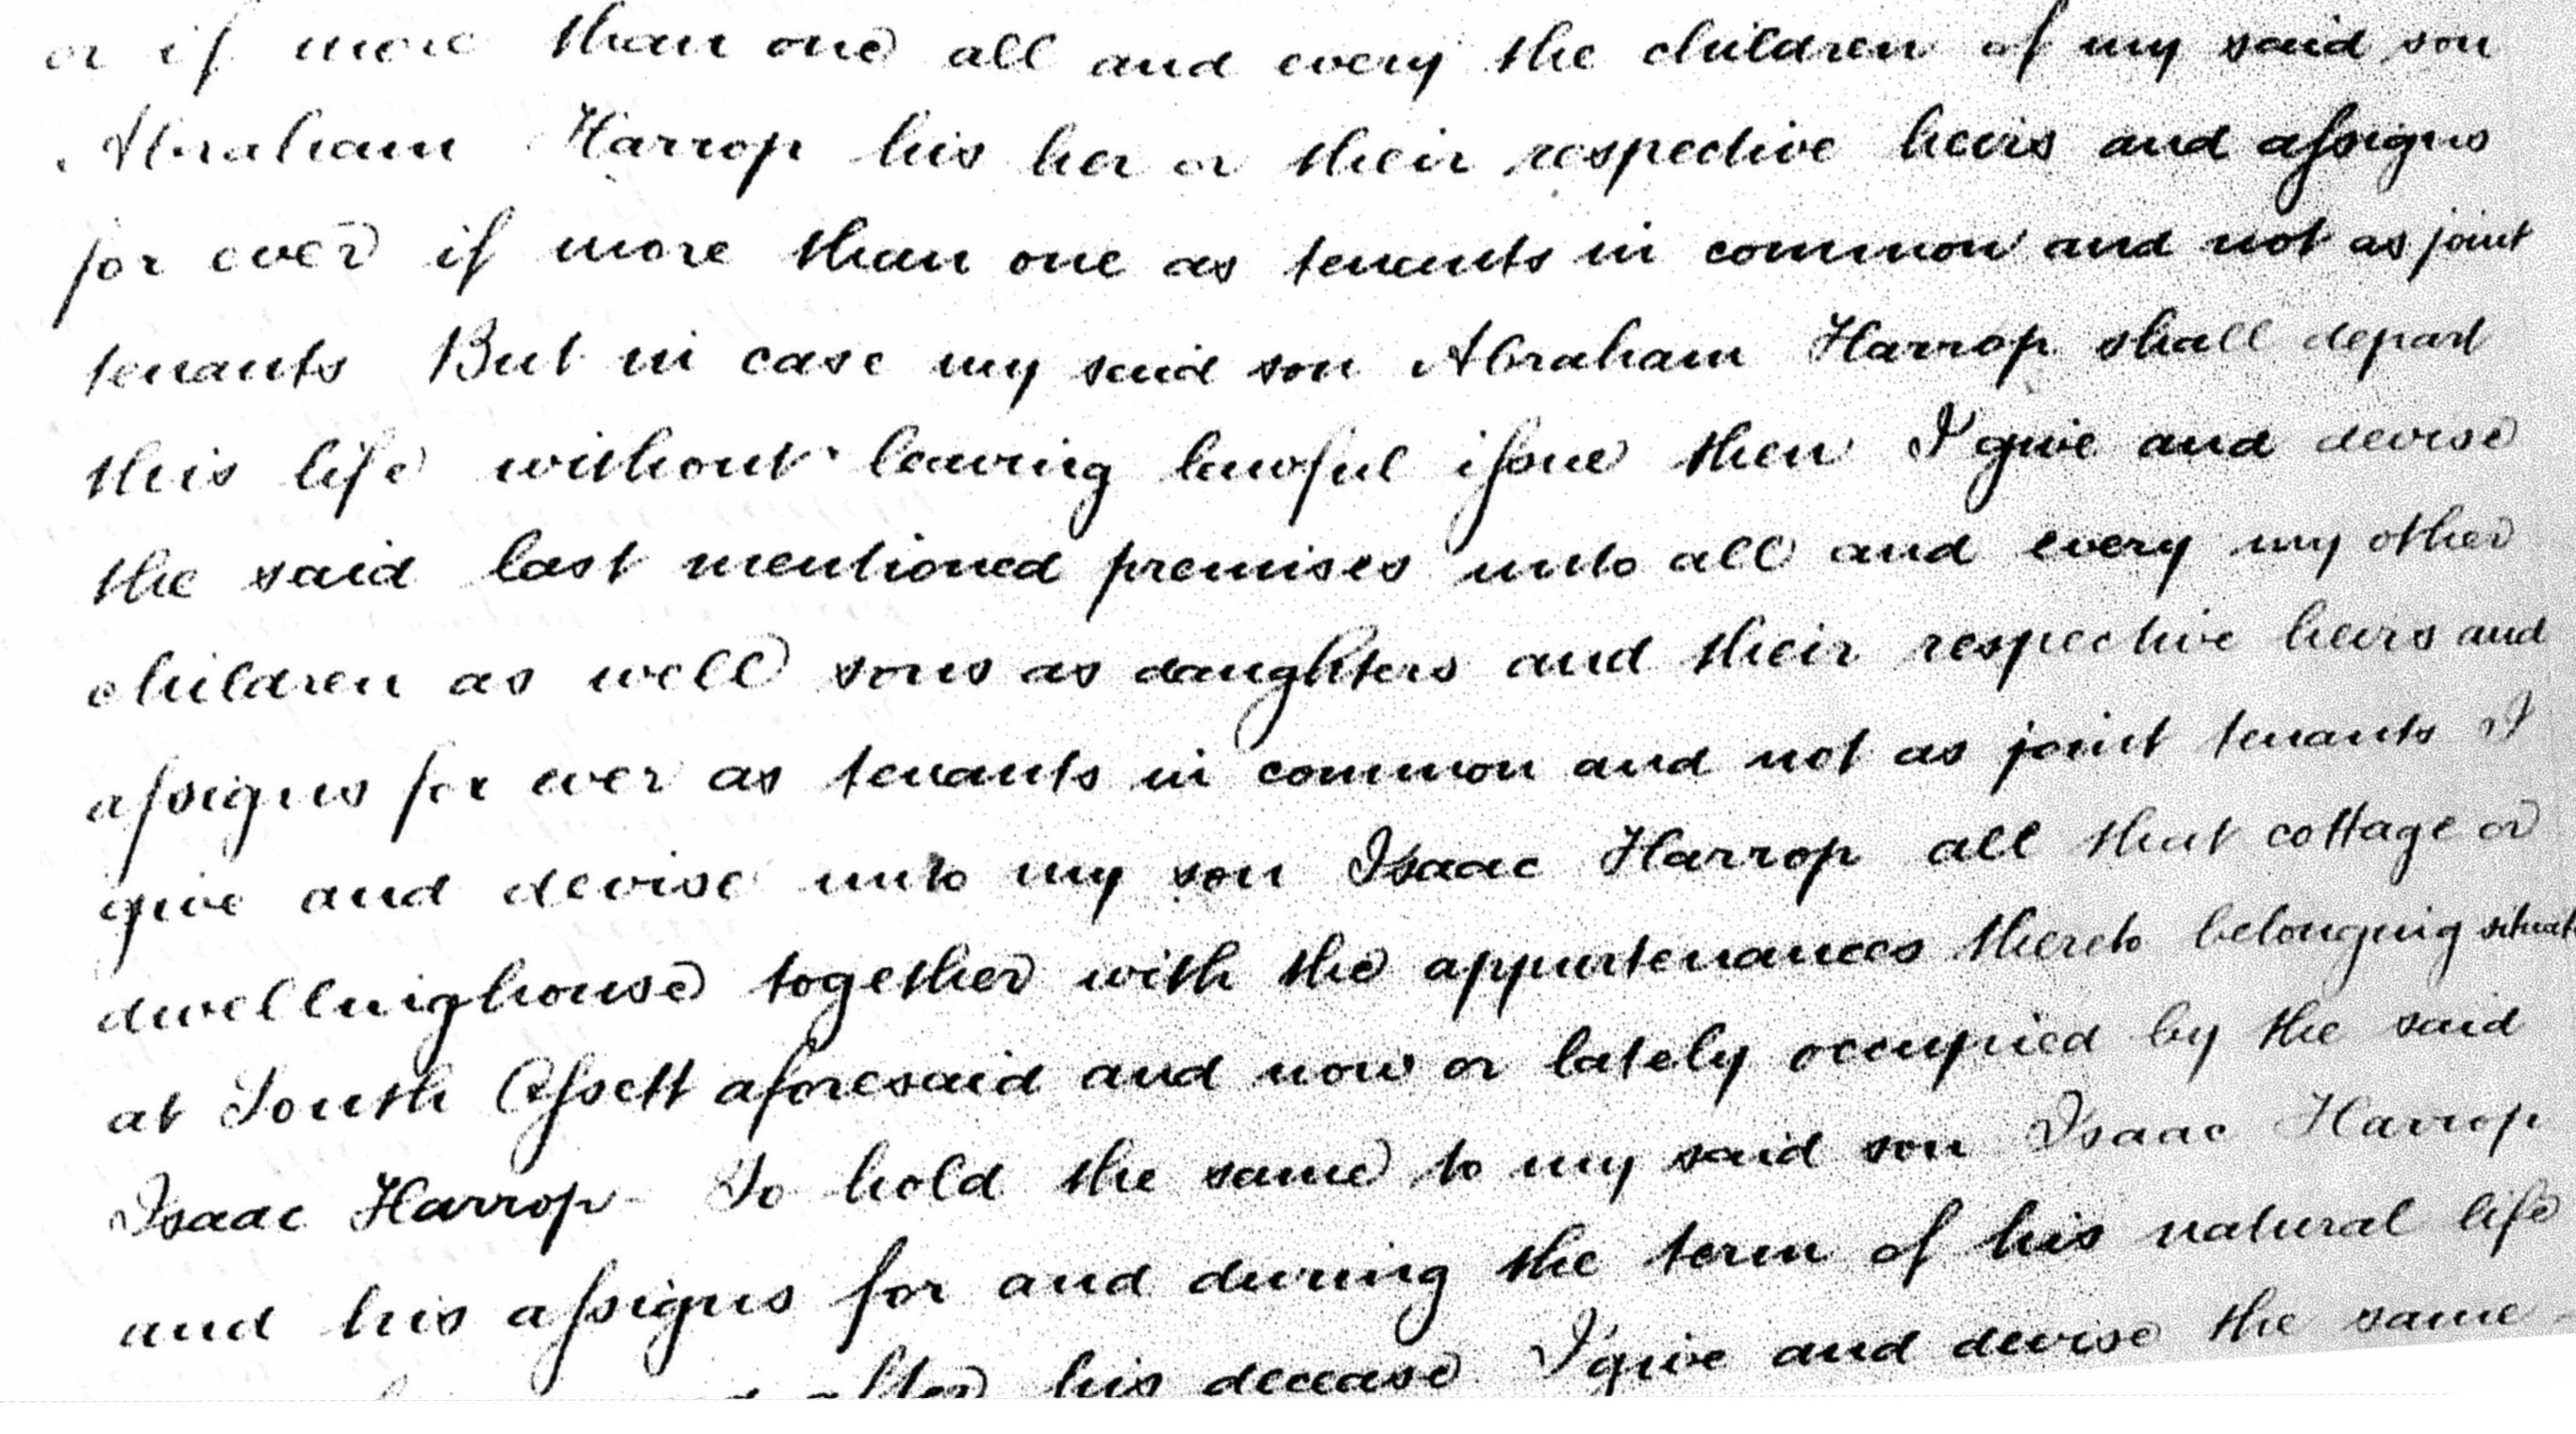 or if more than one all and every the children of my said son
Abraham Harrop his her or their respective heirs and assigns
for ever if more than one as tenants in common and not as joint
tenants But in case my said son Abraham Harrop shall depart
this life without leaving lawful issue then I give and devise
the said last mentioned premises unto all and every my other
children as well sons as daughters and their respective heirs and
assigns for ever as tenants in common and not as joint tenants I
give and devise unto my son Isaac Harrop all that cottage or
dwellinghouse together with the appurtenances thereto belonging situate
at South Ossett aforesaid and now or lately occupied by the said
Isaac Harrop To hold the same to my said son Isaac Harrop
and his assigns for and during the term of his natural life
after his decease I give and devise the same